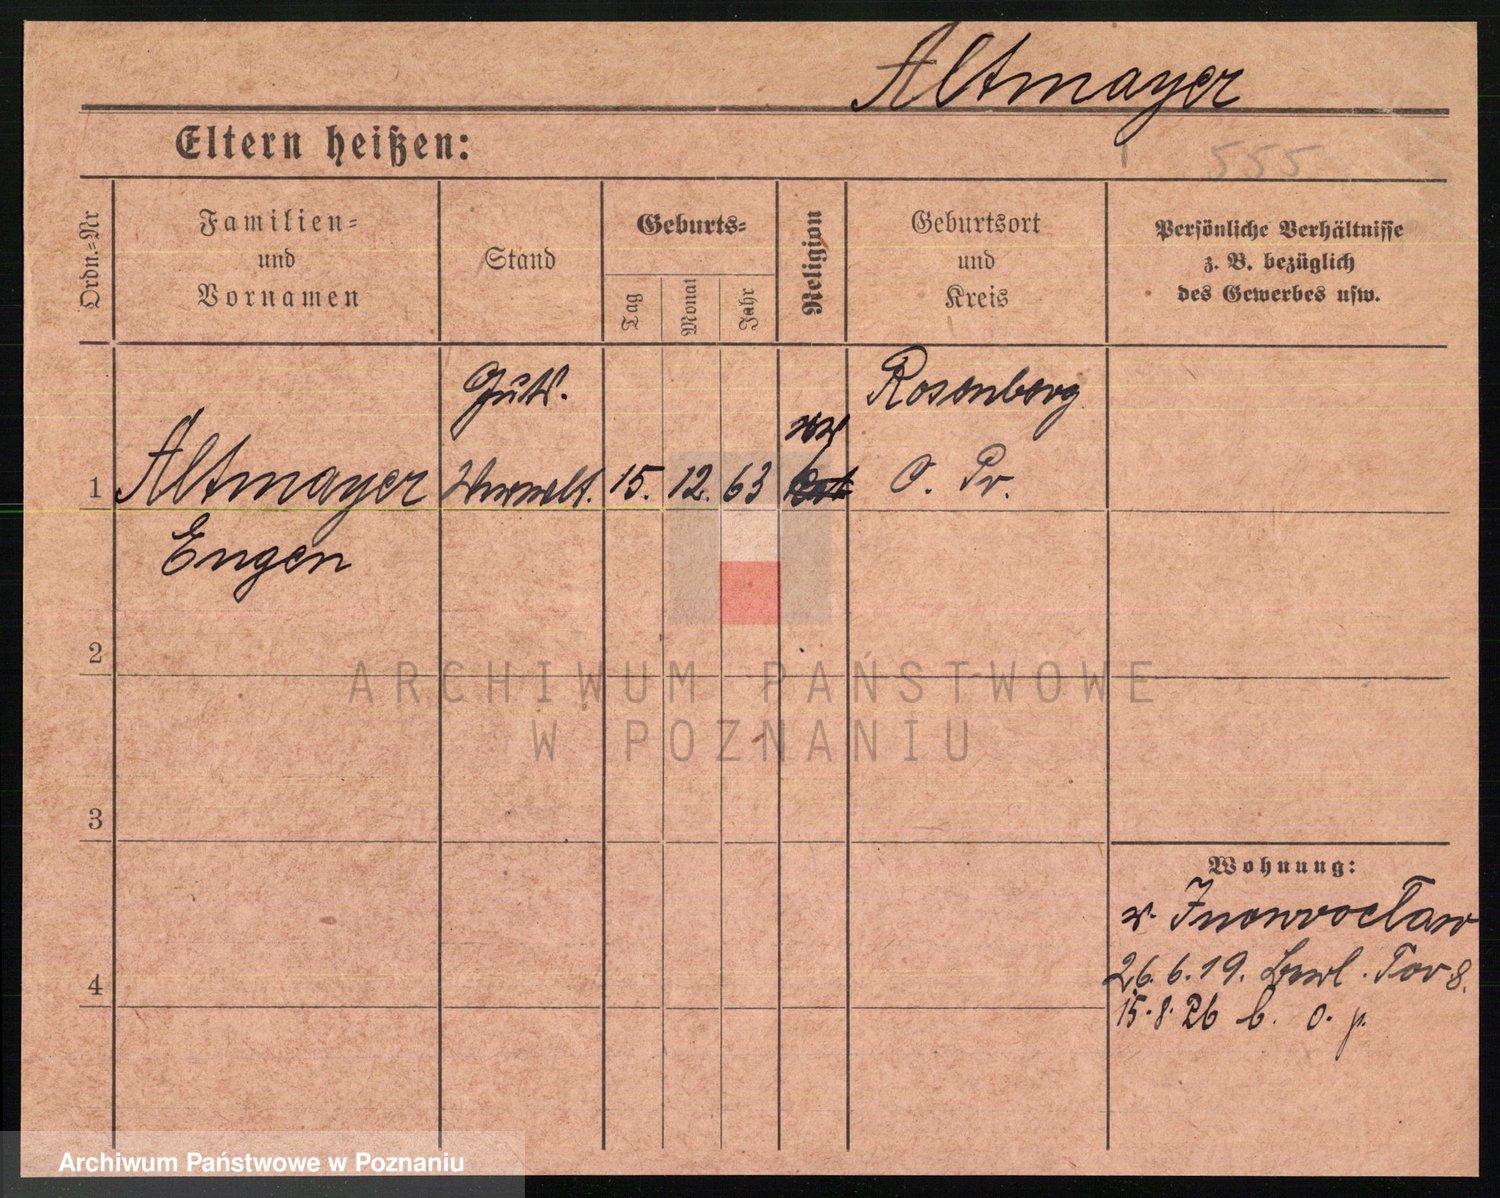 Altmayer
Eltern heißen:
555
Ordn.-Nr
Familien-
und
Vornamen
Stand
Geburts-
Tag
Monat
Jahr
Religion
Geburtsort
und
Kreis
Persönliche Verhältnisse
z. B. bezüglich
des Gewerbes usw.
1
Altmayer
Eugen
Guts.
Verwalt.
15.
12.
63
Rosenberg
O. Pr.
2
3
4
Wohnung:
v. Inowroclaw
26. 6. 19. Berl. Tor 8.
15. 8. 26 b. o. p.
ARCHIWUM PAŃSTWOWE
W POZNANIU
Archiwum Państwowe w Poznaniu